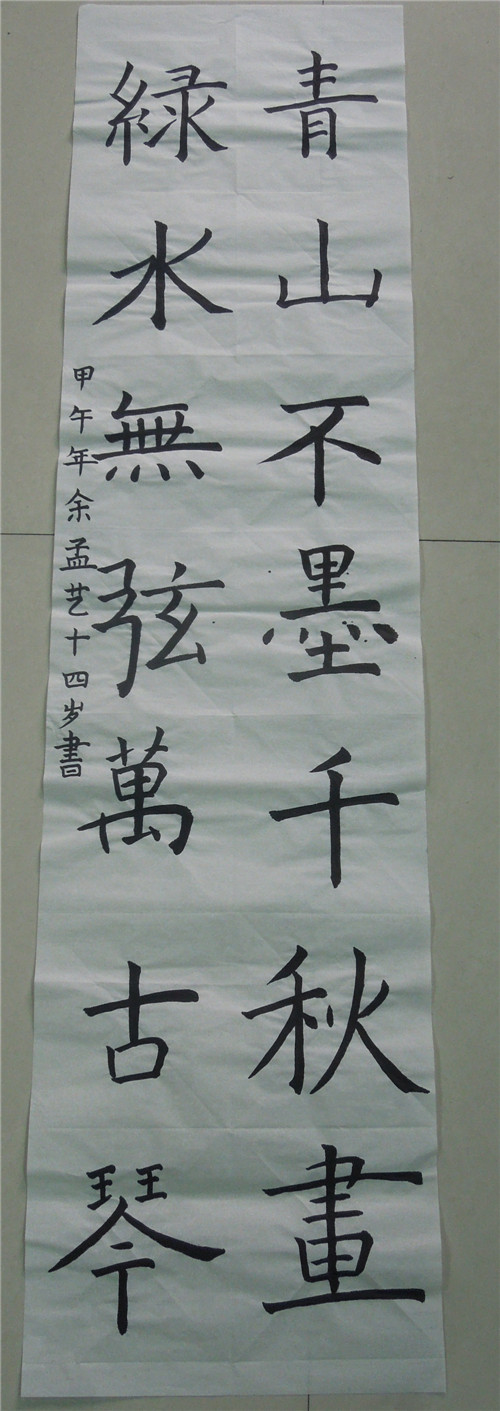 青山不墨千秋畫
緑水無弦萬古琴
甲午年余孟艺十四岁書